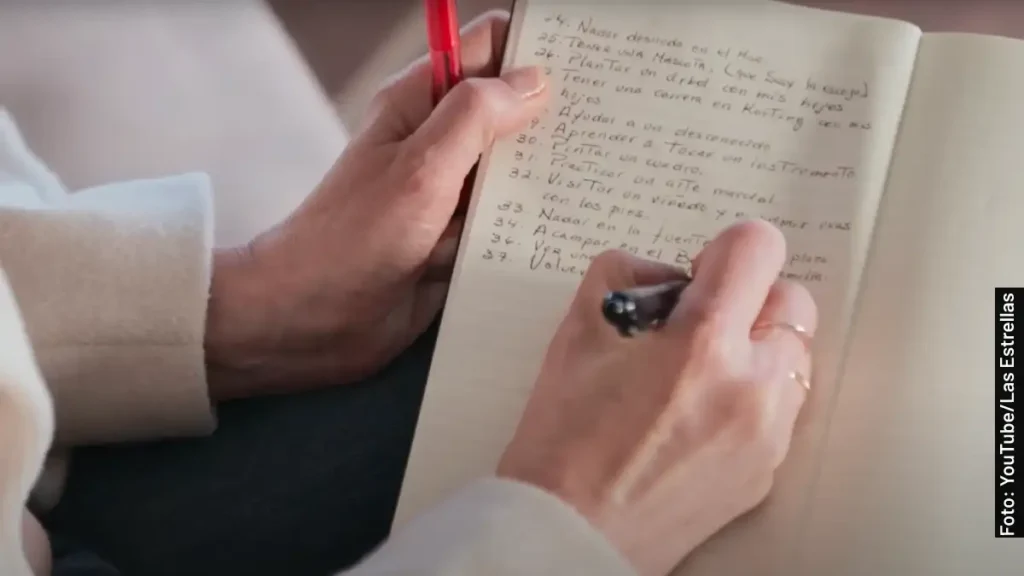 24. Nadar desnudo en el mar.
25. Tener una mascota, (que Susy la escoja)
26. Plantar un árbol con mis hijos
Tener una carrera en Karting con mis
hijos
Ayudar a un desconocido
29. Aprender a tocar un instrumento
30. Pintar un cuadro.
31. Practicar un arte marcial
32. Visitar un viñedo y uvas
con los pies.
33. Nadar en la fuente
34. Acampar en el
36. Ver una
37. Volver
Foto: YouTube/Las Estrellas